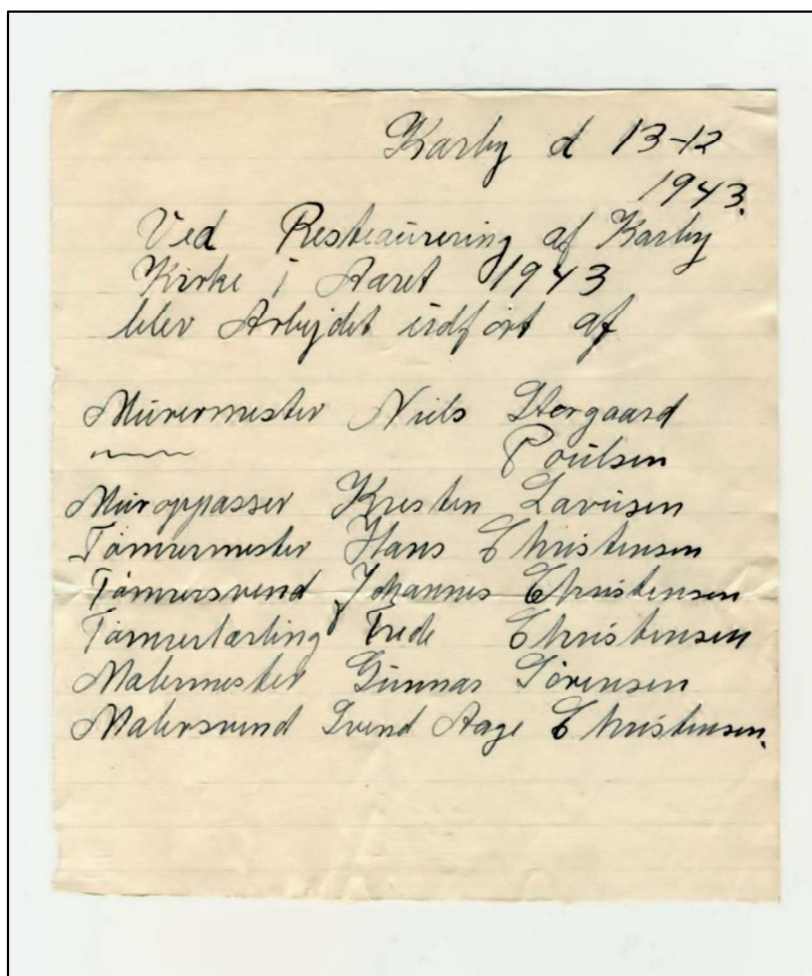 Karby d 13-12
1943.
Ved Resteaurering af Karby
Kirke i Aaret 1943
blev Arbejdet udført af
Murermester Niels Storgaard
Poulsen
Muroppasser Kresten Lavusen
Tømrermester Hans Christensen
Tømrersvend Johannes Christensen
Tømrerlærling Frede Christensen
Malermester Gunnar Sørensen
Malersvend Svend Aage Christensen.